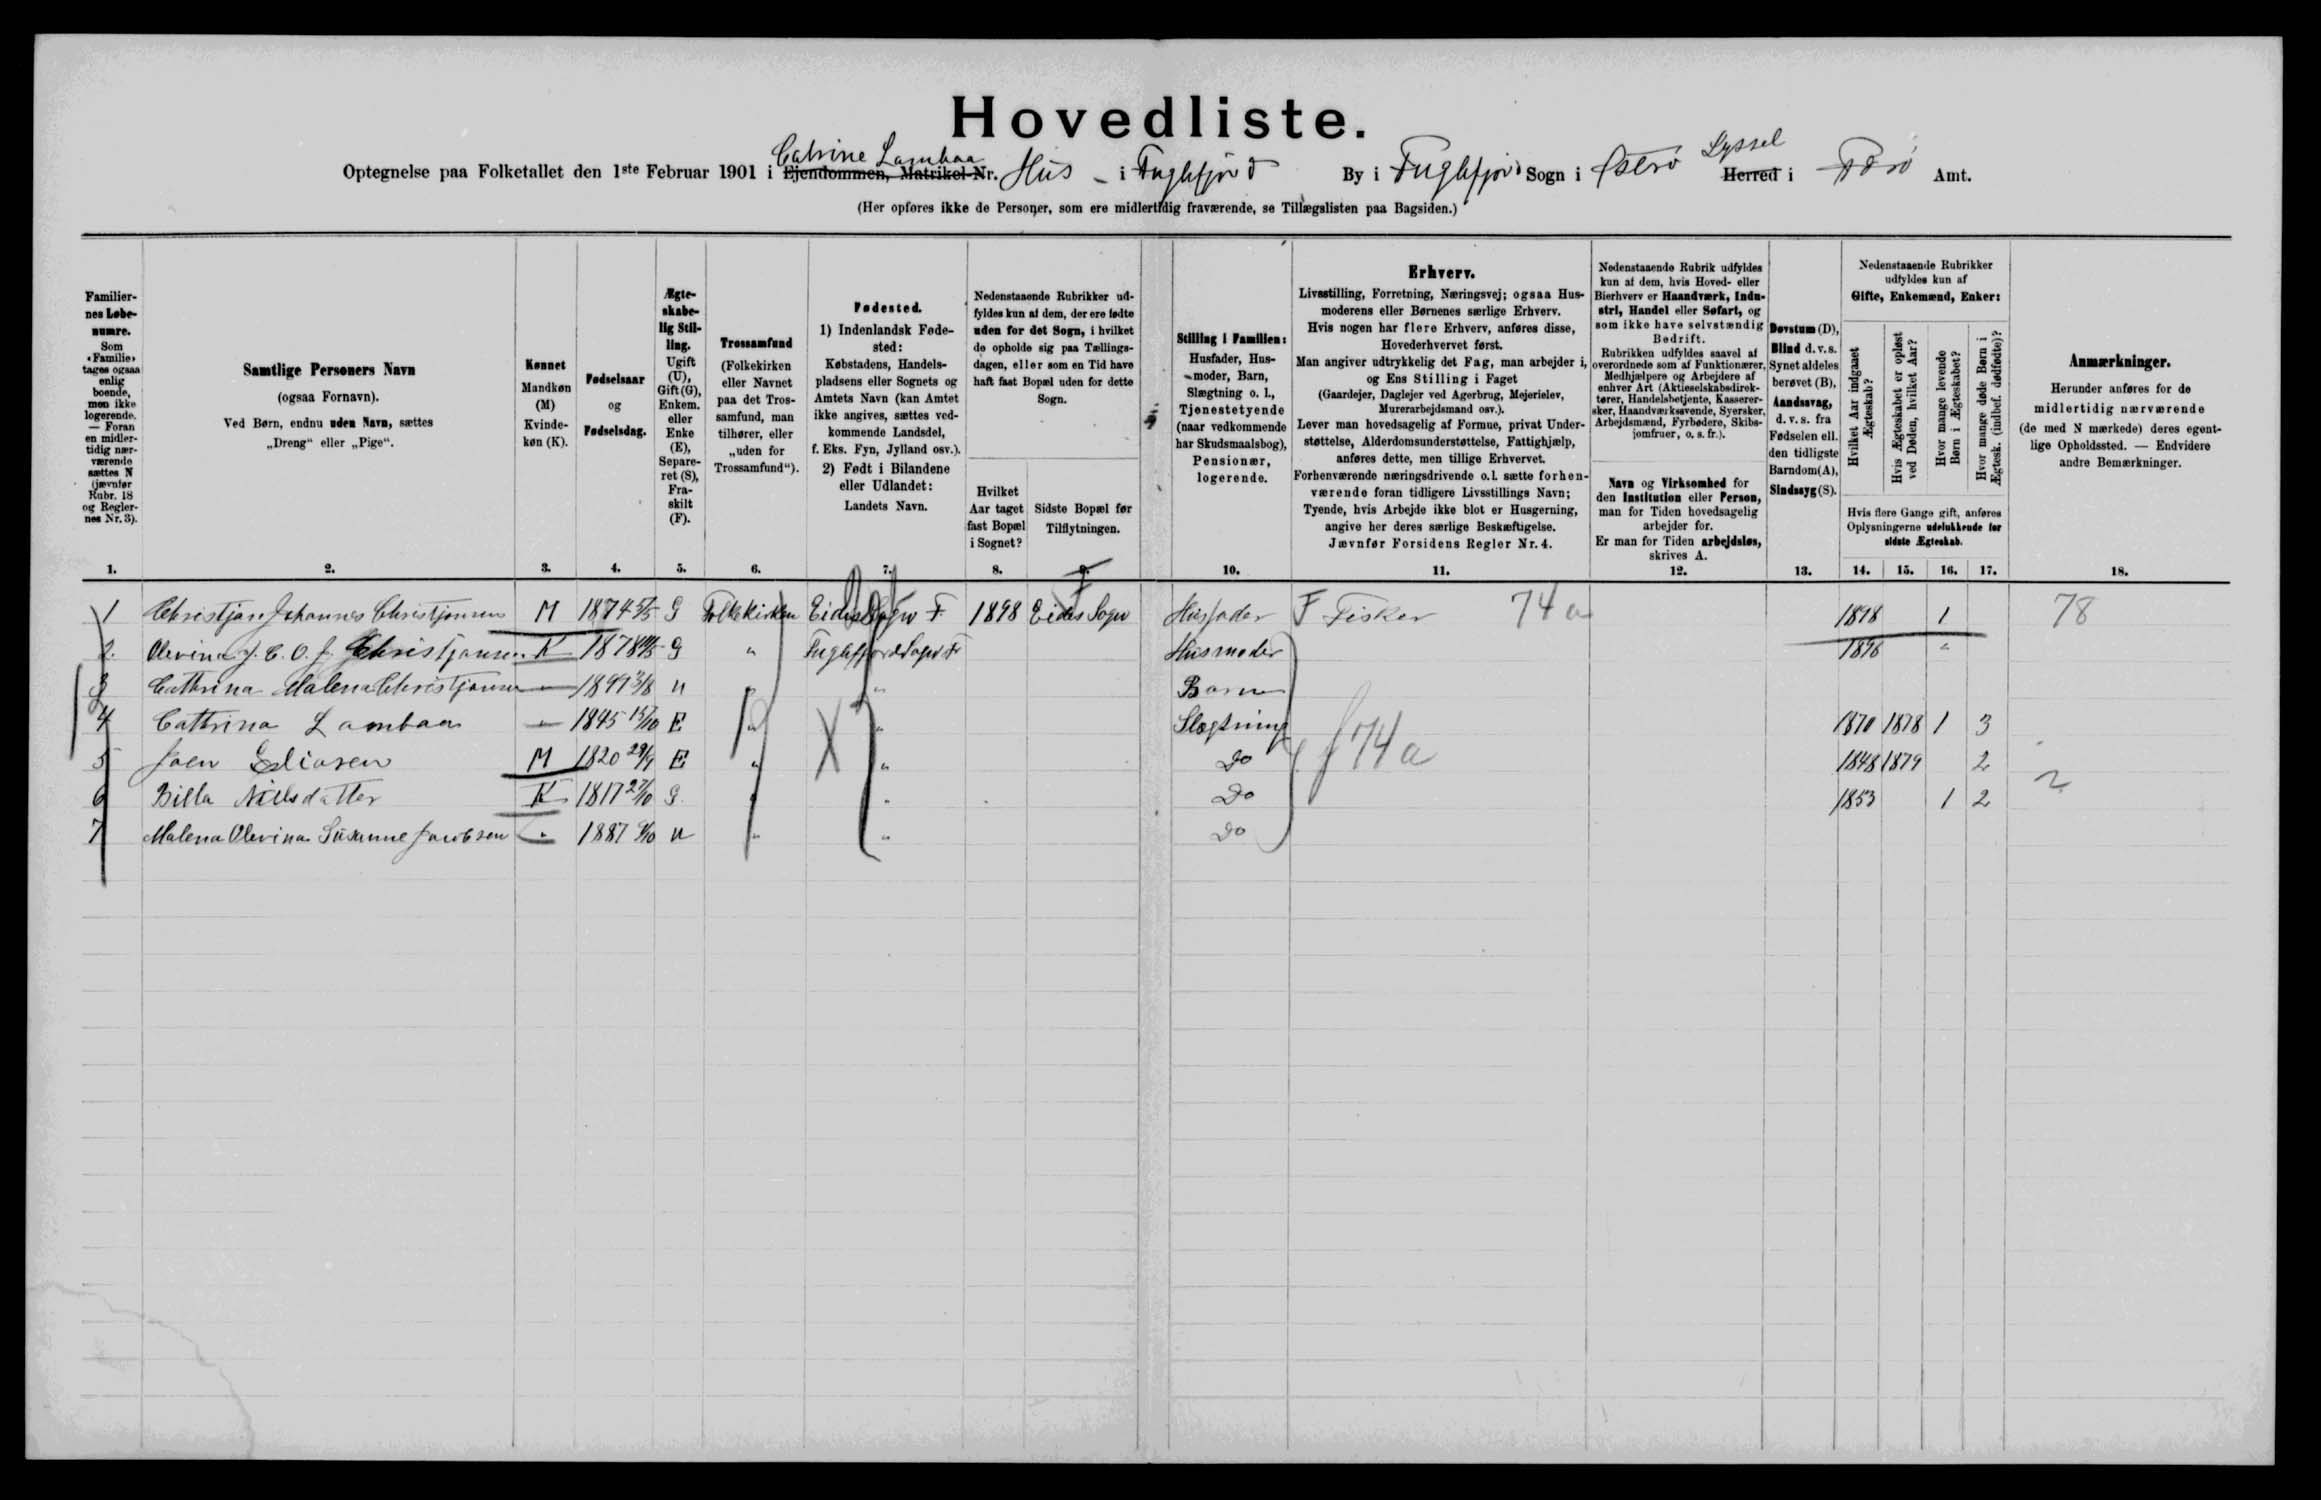 Hovedliste.
Catrine Lambaa
Optegnelse paa Folketallet den 1ste Februar 1901 i Ejendommen, Matrikel-Nr. Hus - i Fuglefjord By i Fuglefjord Sogn i Østerø Syssel Herred i Færø Amt.
(Her opføres ikke de Personer, som ere midlertidig fraværende, se Tillægslisten paa Bagsiden.)
Familiernes Løbenumre.
Som «Familie» tages ogsaa enlig boende, men ikke logerende. — Foran en midlertidig nærværende sættes N (jævnfør Rubr. 18 og Reglernes Nr. 3).
Samtlige Personers Navn
(ogsaa Fornavn).
Ved Børn, endnu uden Navn, sættes „Dreng“ eller „Pige“.
Kønnet
Mandkøn (M)
Kvindekøn (K).
Fødselsaar og Fødselsdag.
Ægteskabelig Stilling.
Ugift (U), Gift (G), Enkem. eller Enke (E), Separeret (S), Fraskilt (F).
Trossamfund
(Folkekirken eller Navnet paa det Trossamfund, man tilhører, eller „uden for Trossamfund“).
Fødested.
1) Indenlandsk Fødested:
Købstadens, Handelspladsens eller Sognets og Amtets Navn (kan Amtet ikke angives, sættes vedkommende Landsdel, f. Eks. Fyn, Jylland osv.).
2) Født i Bilandene eller Udlandet:
Landets Navn.
Nedenstaaende Rubrikker udfyldes kun af dem, der ere fødte uden for det Sogn, i hvilket de opholde sig paa Tællingsdagen, eller som en Tid have haft fast Bopæl uden for dette Sogn.
Hvilket Aar taget fast Bopæl i Sognet?
Sidste Bopæl før Tilflytningen.
Stilling i Familien:
Husfader, Husmoder, Barn, Slægtning o. l., Tjenestetyende (naar vedkommende har Skudsmaalsbog), Pensionær, logerende.
Erhverv.
Livsstilling, Forretning, Næringsvej; ogsaa Husmoderens eller Børnenes særlige Erhverv.
Hvis nogen har flere Erhverv, anføres disse, Hovederhvervet først.
Man angiver udtrykkelig det Fag, man arbejder i, og Ens Stilling i Faget
(Gaardejer, Daglejer ved Agerbrug, Mejerielev, Murerarbejdsmand osv.).
Lever man hovedsagelig af Formue, privat Understøttelse, Alderdomsunderstøttelse, Fattighjælp, anføres dette, men tillige Erhvervet.
Forhenværende næringsdrivende o. l. sætte forhenværende foran tidligere Livsstillings Navn;
Tyende, hvis Arbejde ikke blot er Husgerning, angive her deres særlige Beskæftigelse.
Jævnfør Forsidens Regler Nr. 4.
Nedenstaaende Rubrik udfyldes kun af dem, hvis Hoved- eller Bierhverv er Haandværk, Industri, Handel eller Søfart, og som ikke have selvstændig Bedrift.
Rubrikken udfyldes saavel af overordnede som af Funktionærer, Medhjælpere og Arbejdere af enhver Art (Aktieselskabsdirektører, Handelsbetjente, Kasserersker, Haandværkssvende, Syersker, Arbejdsmænd, Fyrbødere, Skibsjomfruer, o. s. fr.).
Navn og Virksomhed for den Institution eller Person, man for Tiden hovedsagelig arbejder for.
Er man for Tiden arbejdsløs, skrives A.
Døvstum (D), Blind d. v. s. Synet aldeles berøvet (B), Aandssvag, d. v. s. fra Fødselen ell. den tidligste Barndom (A), Sindssyg (S).
Nedenstaaende Rubrikker udfyldes kun af Gifte, Enkemænd, Enker:
Hvilket Aar indgaaet Ægteskab?
Hvis Ægteskabet er opløst ved Døden, hvilket Aar?
Hvor mange levende Børn i Ægteskabet?
Hvor mange døde Børn i Ægtesk. (indbef. dødfødte)?
Hvis flere Gange gift, anføres Oplysningerne udelukkende for sidste Ægteskab.
Anmærkninger.
Herunder anføres for de midlertidig nærværende (de med N mærkede) deres egentlige Opholdssted. — Endvidere andre Bemærkninger.
1. 2. 3. 4. 5. 6. 7. 8. 9. 10. 11. 12. 13. 14. 15. 16. 17. 18.
1 Christjan Johannes Christjansen M 1874 G Folkekirken Eides Sogn F. 1898 Eides Sogn Husfader F Fisker 74 a 1898 1 78
2. Olevina J. C. O. J. Christjansen K 1878 G " Fuglefjord Sogn F Husmoder 1898 "
3 Cathrina Malena Christjansen " 1899 3/8 U " " Barn
4 Cathrina Lambaa " 1845 15/10 E " " Slægtning 1870 1878 1 3
5 Joen Eliasen M 1820 29/9 E " " Do f 74 a 1848 1879 2
6 Billa Nilsdatter K 1817 27/10 G " " Do 1853 1 2
7 Malena Olevina Susanne Jacobsen " 1887 9/10 U " " Do